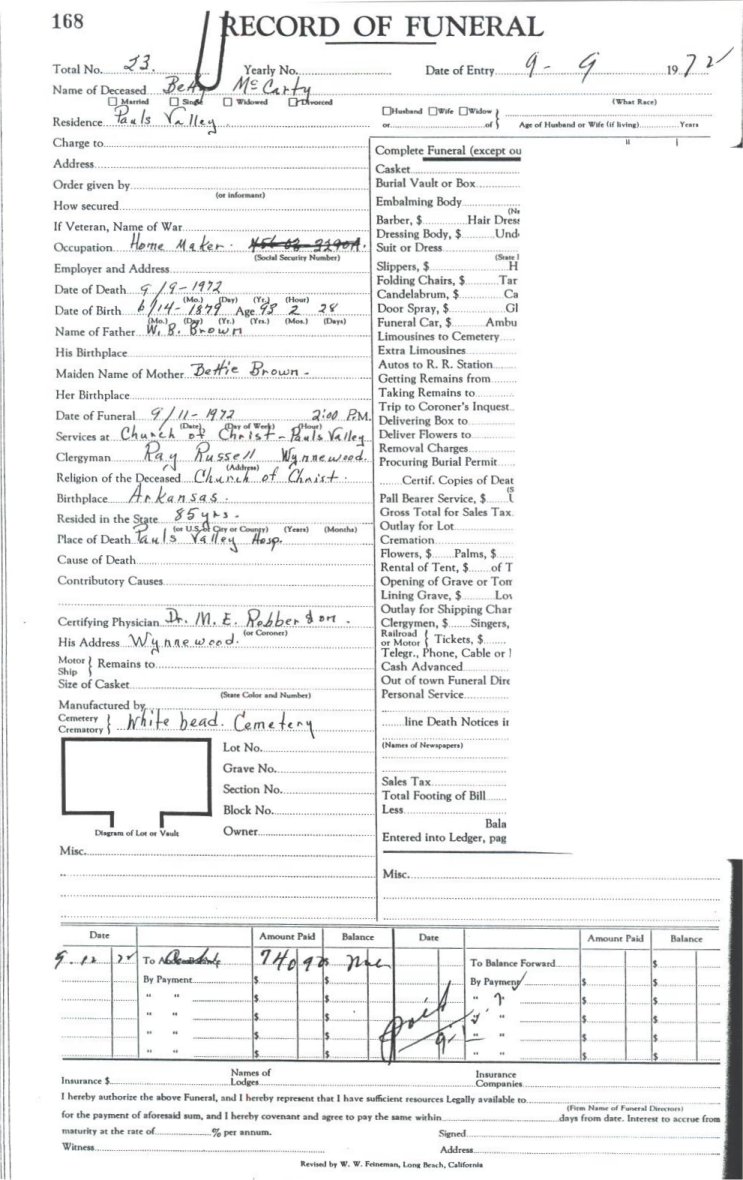 168 RECORD OF FUNERAL
Total No. 23. Yearly No. Date of Entry 9 - 9 1972
Name of Deceased Betty McCarty
Married Single Widowed Divorced
(What Race)
Husband Wife Widow
or of Age of Husband or Wife (if living) Years
Residence Pauls Valley
Charge to
Address
Order given by
(or informant)
How secured
If Veteran, Name of War
Occupation Home Maker.
(Social Security Number)
Employer and Address
Date of Death 9/9-1972
(Mo.) (Day) (Yr.) (Hour)
Date of Birth 6/14-1879 Age 93 2 28
(Mo.) (Day) (Yr.) (Yrs.) (Mos.) (Days)
Name of Father W. B. Brown
His Birthplace
Maiden Name of Mother Bettie Brown -
Her Birthplace
Date of Funeral 9/11-1972 2:00 P.M.
(Date) (Day of Week) (Hour)
Services at Church of Christ - Pauls Valley
Clergyman Ray Russell Wynnewood.
(Address)
Religion of the Deceased Church of Christ.
Birthplace Arkansas.
Resided in the State 85 yrs -
(or U.S. or City or County) (Years) (Months)
Place of Death Pauls Valley Hosp.
Cause of Death
Contributory Causes
Certifying Physician Dr. M. E. Robberson.
(or Coroner)
His Address Wynnewood.
Motor
Ship Remains to
Size of Casket
(State Color and Number)
Manufactured by
Cemetery
Crematory White bead. Cemetery
Lot No.
Grave No.
Section No.
Block No.
Owner
Diagram of Lot or Vault
Misc.
Complete Funeral (except ou
Casket
Burial Vault or Box
Embalming Body
(Na
Barber, $ Hair Dress
Dressing Body, $ Und
Suit or Dress
(State
Slippers, $ H
Folding Chairs, $ Tar
Candelabrum, $ Ca
Door Spray, $ Gl
Funeral Car, $ Ambu
Limousines to Cemetery
Extra Limousines
Autos to R. R. Station
Getting Remains from
Taking Remains to
Trip to Coroner's Inquest
Delivering Box to
Deliver Flowers to
Removal Charges
Procuring Burial Permit
Certif. Copies of Deat
(S
Pall Bearer Service, $
Gross Total for Sales Tax
Outlay for Lot
Cremation
Flowers, $ Palms, $
Rental of Tent, $ of T
Opening of Grave or Tom
Lining Grave, $ Lov
Outlay for Shipping Char
Clergymen, $ Singers,
Railroad
or Motor Tickets, $
Telegr., Phone, Cable or
Cash Advanced
Out of town Funeral Dire
Personal Service
line Death Notices in
(Names of Newspapers)
Sales Tax
Total Footing of Bill
Less
Bala
Entered into Ledger, pag
Misc.
Date Amount Paid Balance Date Amount Paid Balance
9 12 72 To 740 90 To Balance Forward $
By Payment $ $ By Payment $ $
" " $ $ " " $ $
" " $ $ paid " " $ $
" " $ $ " " $ $
" " $ $ " " $ $
Insurance $ Names of Lodges Insurance Companies
I hereby authorize the above Funeral, and I hereby represent that I have sufficient resources Legally available to
(Firm Name of Funeral Directors)
for the payment of aforesaid sum, and I hereby covenant and agree to pay the same within days from date. Interest to accrue from
maturity at the rate of % per annum. Signed
Witness Address
Revised by W. W. Feineman, Long Beach, California